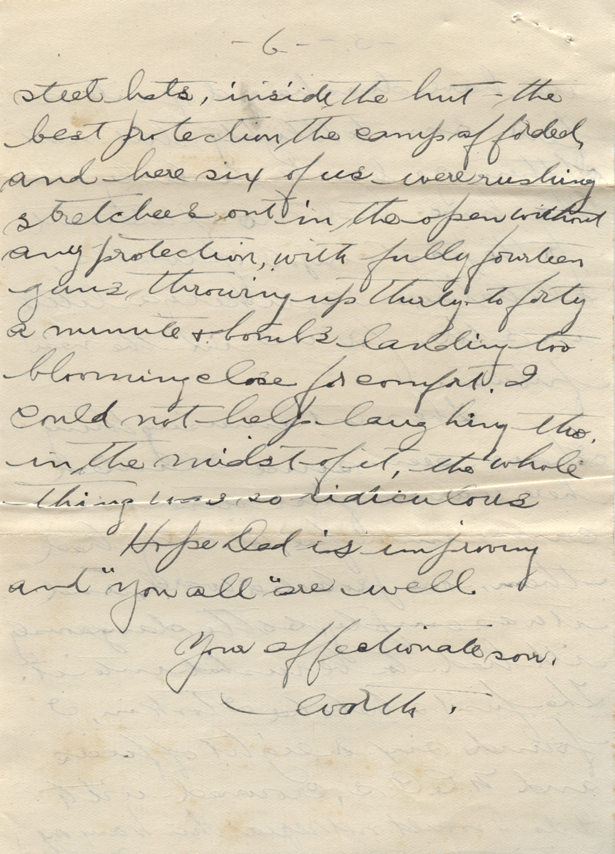 - 6 -
steel hats, inside the hut - the
best protection the camp afforded,
and here six of us were rushing
stretchers out in the open without
any protection, with fully fourteen
guns throwing up thirty to forty
a minute & bombs landing too
blooming close for comfort. I
could not help laughing tho,
in the midst of it, the whole
thing was so ridiculous
Hope Dad is improving
and "you all" are well.
Your affectionate son,
Worth.